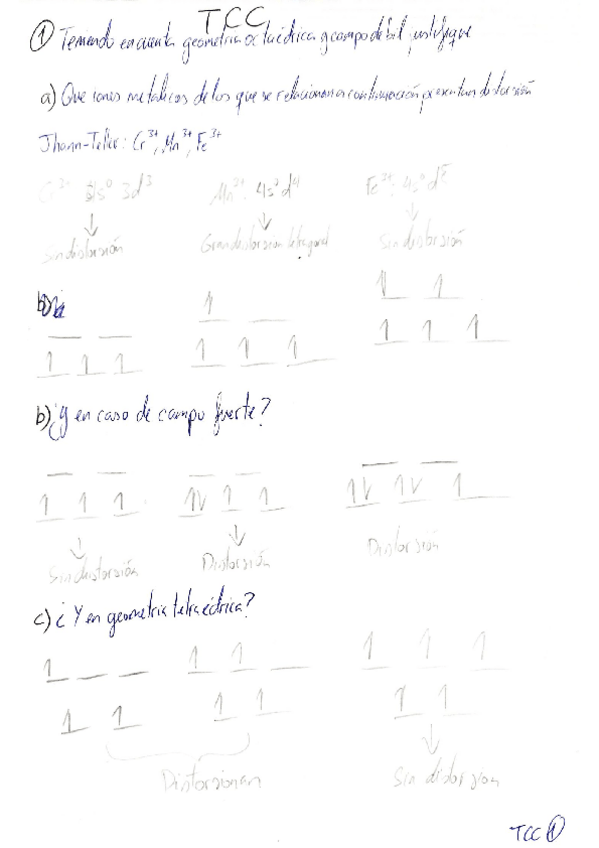 TCC
① Teniendo en cuenta geometría octaédrica y campo débil justifique
a) Que iones metálicos de los que se relacionan a continuación presentan distorsión
Jhann-Teller: Cr³⁺, Mn³⁺, Fe³⁺
Cr³⁺ 4s⁰ 3d³ Mn³⁺ 4s⁰ d⁴ Fe³⁺ 4s⁰ d⁵
↓ ↓ ↓
Sin distorsión Gran distorsión tetragonal Sin distorsión
1 1 1
b)
1 1 1 1 1 1 1 1 1
b) ¿y en caso de campo fuerte?
1 1 1 1V 1 1 1V 1V 1
↓ ↓
Sin distorsión Distorsión Distorsión
c) ¿Y en geometría tetraédrica?
1 1 1 1 1 1
1 1 1 1 1 1
↓
Distorsionan Sin distorsión
TCC ①